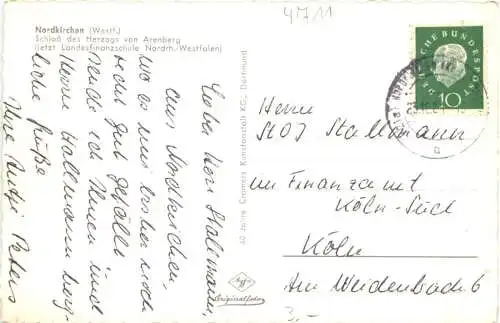 4711
Nordkirchen (Westf.)
Schloß des Herzogs von Arenberg
(jetzt Landesfinanzschule Nordrh.-Westfalen)
Lieber Herr Stallmann,
aus Nordkirchen,
wo es mir bisher noch
recht gut gefällt
sende ich Ihnen und
Herrn
liche Grüße
Ihre Peters
40 Jahre Cramers Kunstanstalt KG., Dortmund
Agfa
Originalfoto
DEUTSCHE BUNDESPOST
10
a
Herrn
StOJ Stallmann
im Finanzamt
Köln-Süd
Köln
Am Weidenbach 6
3,-